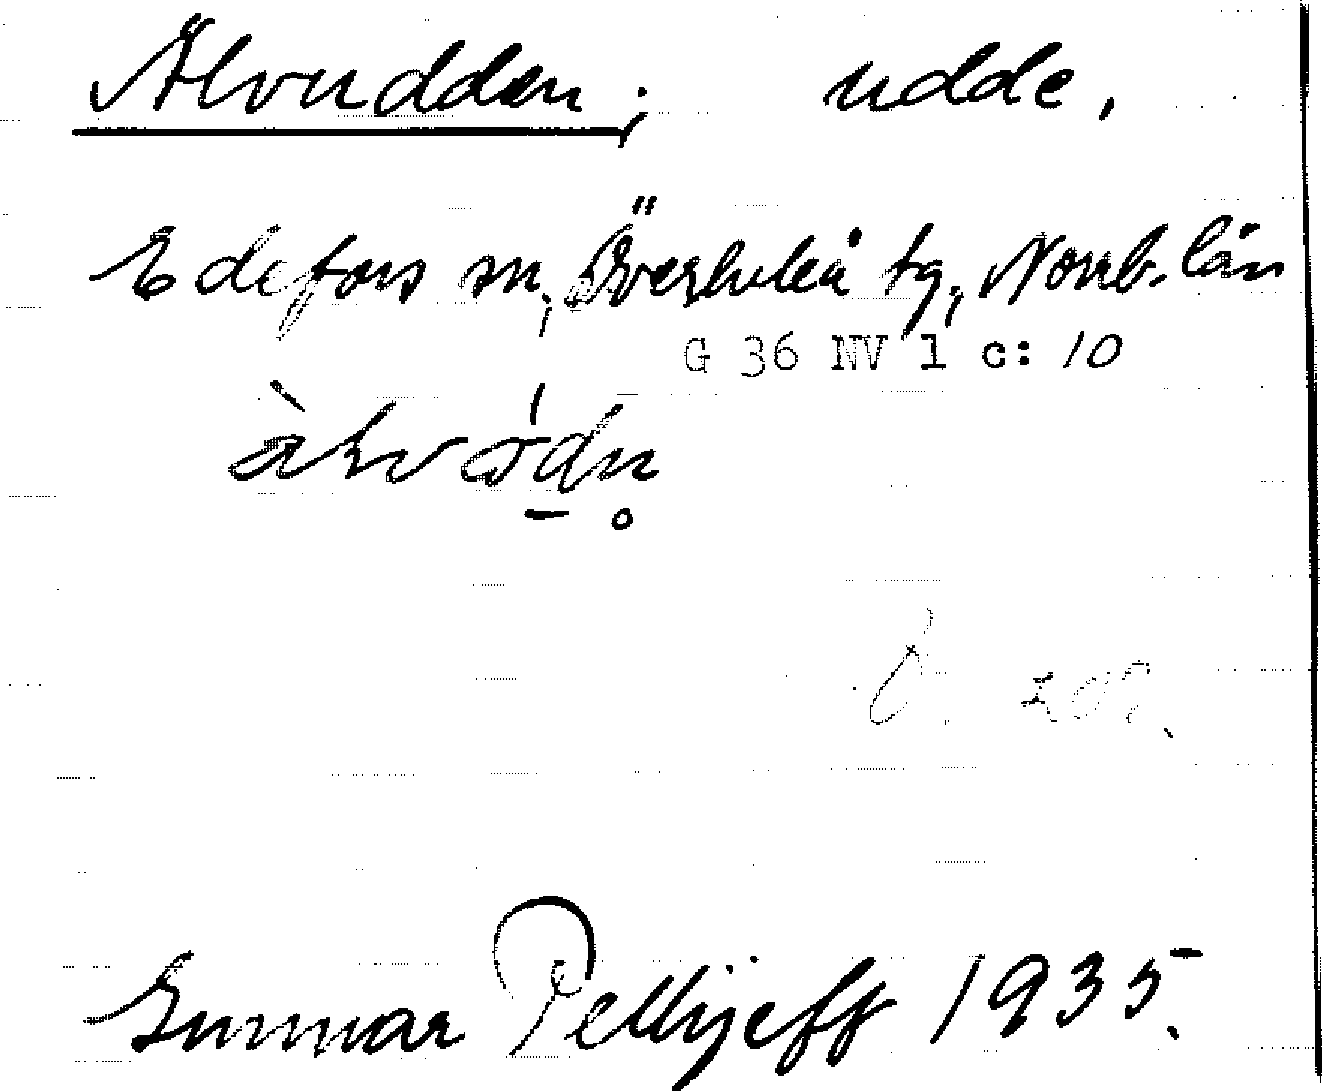 Alvudden, udde,
Edefors sn, Överluleå tg, Norrb. län
G 36 NV 1 c: 10
Gunnar Pellijeff 1935.